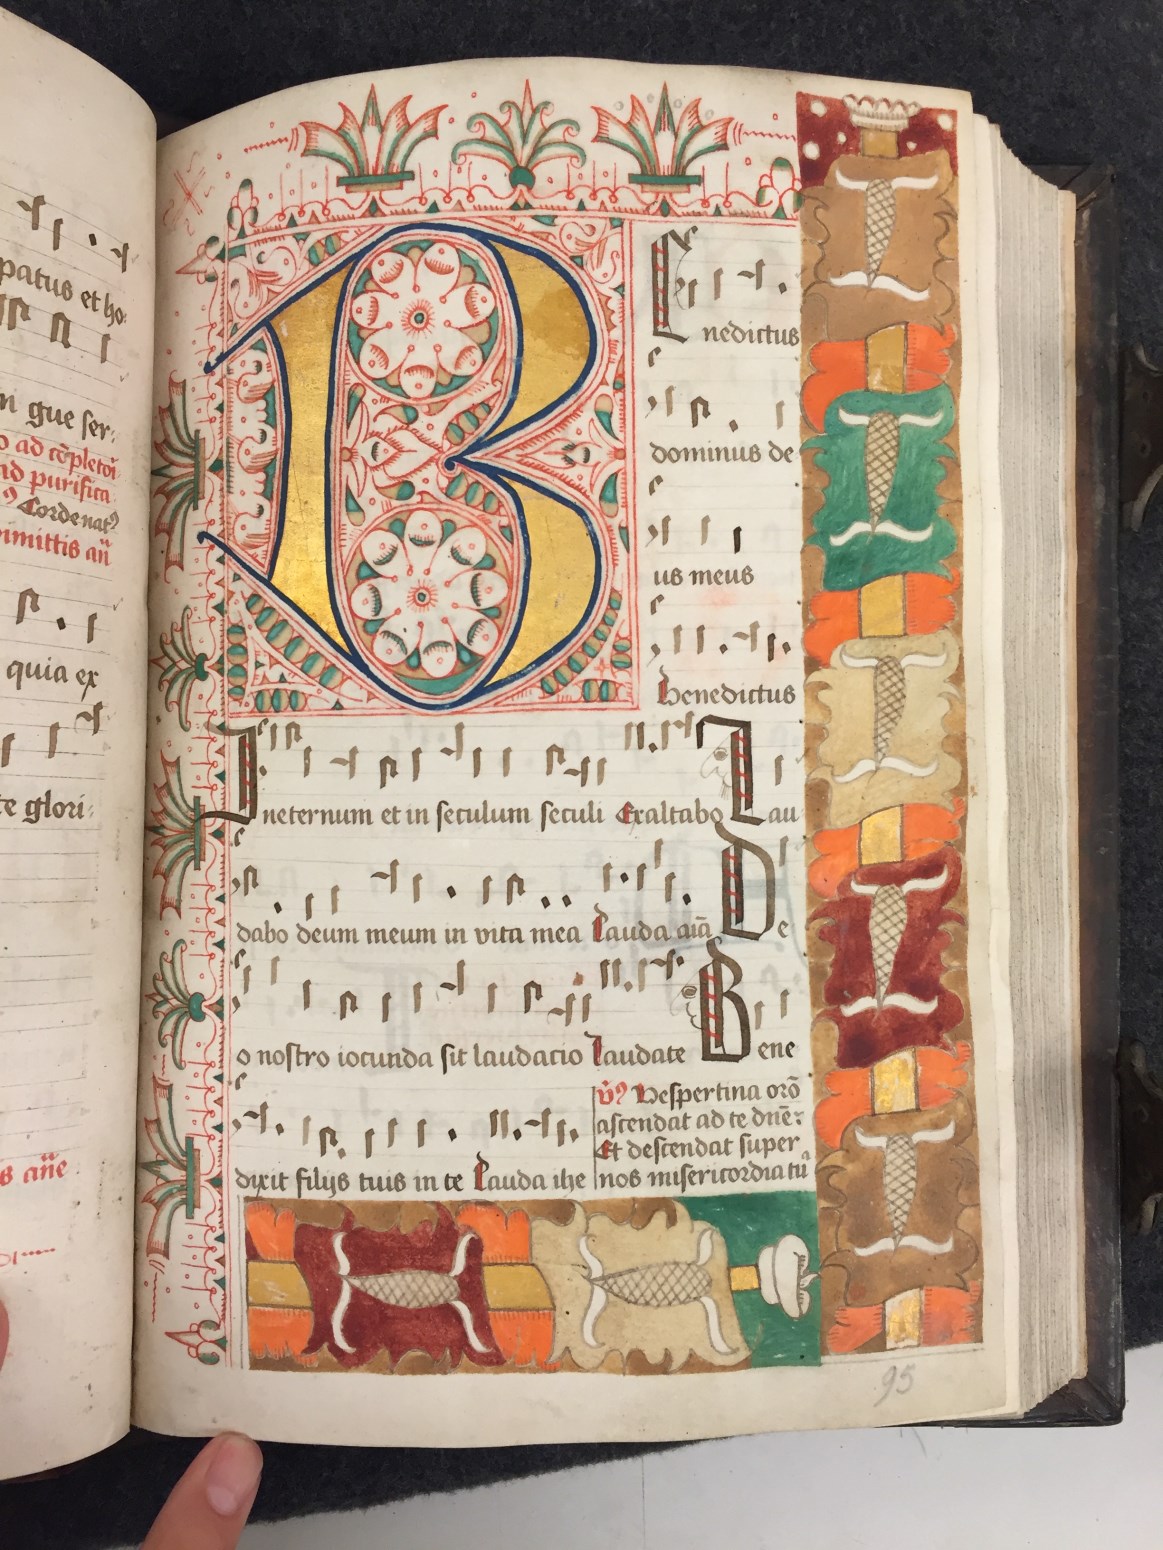 patus et ho:
m que ser:
o ad cōpletoī
ad purifica
Cordenatꝰ
immittis an̄
quia ex
te glori:
s an̄e
B
E nedictus
dominus de
us meus
Benedictus
Ineternum et in seculum seculi Exaltabo Lau
dabo deum meum in vita mea Lauda aīā De
o nostro iocunda sit laudacio Laudate Bene
dixit filijs tuis in te Lauda ihe
v̄ꝰ Vespertina orō
ascendat ad te dnē:
Et descendat super
nos misericordia tua
95